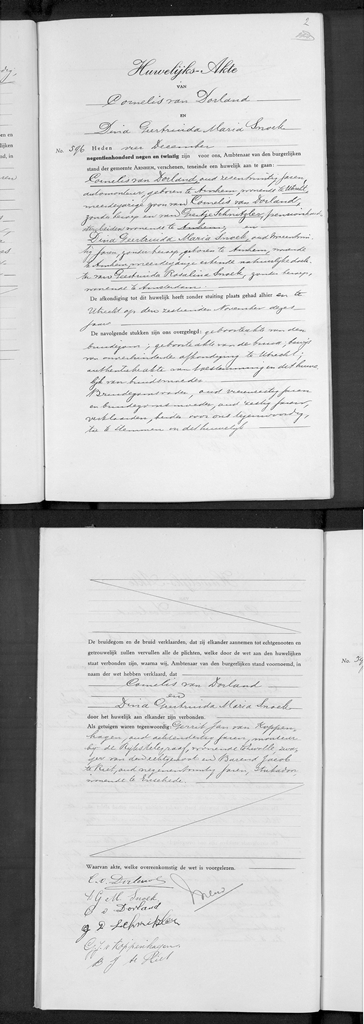 2
Huwelijks-Akte
VAN
Cornelis van Dorland
EN
Dina Geertruida Maria Snoek
No. 396 Heden vier December
negentienhonderd negen en twintig zijn voor ons, Ambtenaar van den burgerlijken
stand der gemeente Arnhem, verschenen, teneinde een huwelijk aan te gaan:
Cornelis van Dorland, oud zeventwintig jaren,
geboren te Arnhem, wonende te Utrecht,
meerderjarige zoon van Cornelis van Dorland,
zonder beroep en van
beiden wonende te Arnhem; en
Dina Geertruida Maria Snoek, oud
jaren, zonder beroep, geboren te Arnhem, wonende
te Arnhem, meerderjarige erkende natuurlijke doch-
ter van Geertruida Rosalina Snoek, zonder beroep,
wonende te Amsterdam
De afkondiging tot dit huwelijk heeft zonder stuiting plaats gehad alhier en te
Utrecht op den November dezes
jaars
De navolgende stukken zijn ons overgelegd: geboorteakte van den
bruidegom; geboorteakte van de bruid; bewijs
van onverhinderde afkondiging te Utrecht;
authentieke akte van toestemming en dit huwe-
lijk van bruids moeder
Bruidegoms vader, oud vierenzestig jaren
en bruidegoms moeder, oud zestig jaren,
verklaarden, beiden voor ons tegenwoordig,
toe te stemmen in dit huwelijk
De bruidegom en de bruid verklaarden, dat zij elkander aannemen tot echtgenooten en
getrouwelijk zullen vervullen alle de plichten, welke door de wet aan den huwelijken
staat verbonden zijn, waarna wij, Ambtenaar van den burgerlijken stand voornoemd, in
naam der wet hebben verklaard, dat
Cornelis van Dorland
en
Dina Geertruida Maria Snoek
door het huwelijk aan elkander zijn verbonden.
Als getuigen waren tegenwoordig: Gerrit Jan van Koppen-
hagen, oud achtendertig jaren, monteur
bij de Rijkstelegraaf, wonende te Zwolle, zwa-
ger van den echtgenoot en Barend Jacob
te Riet, oud negenentwintig jaren,
wonende te Enschede
Waarvan akte, welke overeenkomstig de wet is voorgelezen.
C. v. Dorland
D G M Snoek
C v Dorland
G J v Koppenhagen
B J te Riet